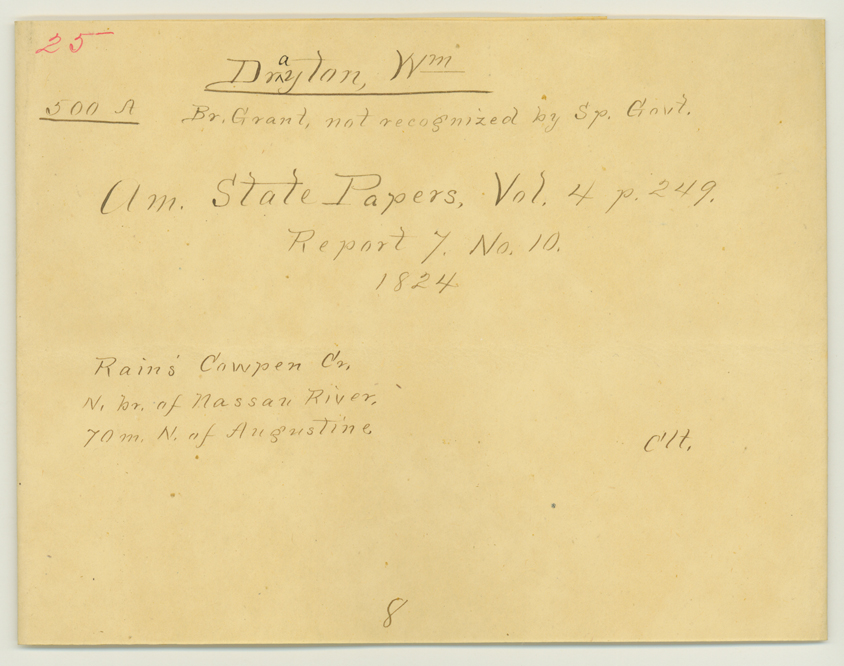 25
Drayton, Wm
500 A Br. Grant, not recognized by Sp. Govt.
Am. State Papers, Vol. 4 p. 249.
Report 7. No. 10.
1824
Rains' Cowpen Cr.
N. br. of Nassau River.
70 m. N. of Augustine
Clt.
8